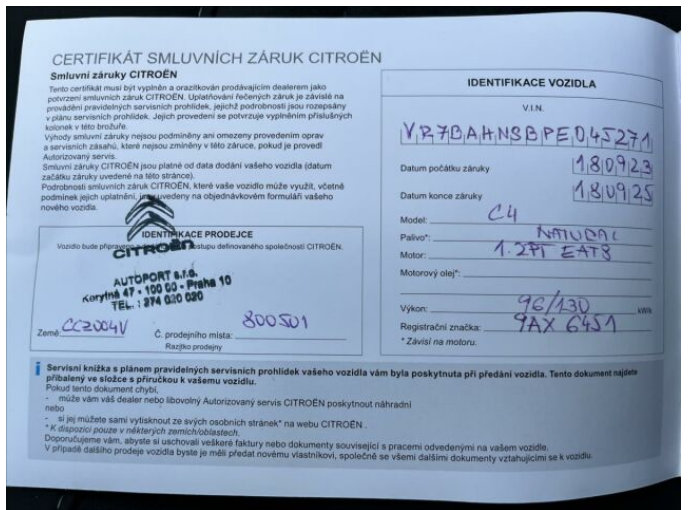 CERTIFIKÁT SMLUVNÍCH ZÁRUK CITROËN
Smluvní záruky CITROËN
Tento certifikát musí být vyplněn a orazítkován prodávajícím dealerem jako
potvrzení smluvních záruk CITROËN. Uplatňování řečených záruk je závislé na
provádění pravidelných servisních prohlídek, jejichž podrobnosti jsou rozepsány
v plánu servisních prohlídek. Jejich provedení se potvrzuje vyplněním příslušných
kolonek v této brožuře.
Výhody smluvní záruky nejsou podmíněny ani omezeny provedením oprav
a servisních zásahů, které nejsou zmíněny v této záruce, pokud je provedl
Autorizovaný servis.
Smluvní záruky CITROËN jsou platné od data dodání vašeho vozidla (datum
začátku záruky uvedené na této stránce).
Podrobnosti smluvních záruk CITROËN, které vaše vozidlo může využít, včetně
podmínek jejich uplatnění, jsou uvedeny na objednávkovém formuláři vašeho
nového vozidla.
IDENTIFIKACE PRODEJCE
Vozidlo bude připraveno postupu definovaného společností CITROËN.
CITROËN
AUTOPORT s.r.o.
Korytná 47 - 100 00 - Praha 10
TEL.: 274 020 020
Země: CCZ004V Č. prodejního místa: 800501
Razítko prodejny
IDENTIFIKACE VOZIDLA
V.I.N.
VR7BAHNSBPE045271
Datum počátku záruky 180923
Datum konce záruky 180925
Model: C4
Palivo*: NATURAL
Motor: 1.2PT EAT8
Motorový olej*:
Výkon: 96/130 kWk
Registrační značka: 9AX 6451
* Závisí na motoru.
i Servisní knížka s plánem pravidelných servisních prohlídek vašeho vozidla vám byla poskytnuta při předání vozidla. Tento dokument najdete
přibalený ve složce s příručkou k vašemu vozidlu.
Pokud tento dokument chybí,
- může vám váš dealer nebo libovolný Autorizovaný servis CITROËN poskytnout náhradní
nebo
- si jej můžete sami vytisknout ze svých osobních stránek* na webu CITROËN .
* K dispozici pouze v některých zemích/oblastech.
Doporučujeme vám, abyste si uschovali veškeré faktury nebo dokumenty související s pracemi odvedenými na vašem vozidle.
V případě dalšího prodeje vozidla byste je měli předat novému vlastníkovi, společně se všemi dalšími dokumenty vztahujícími se k vozidlu.